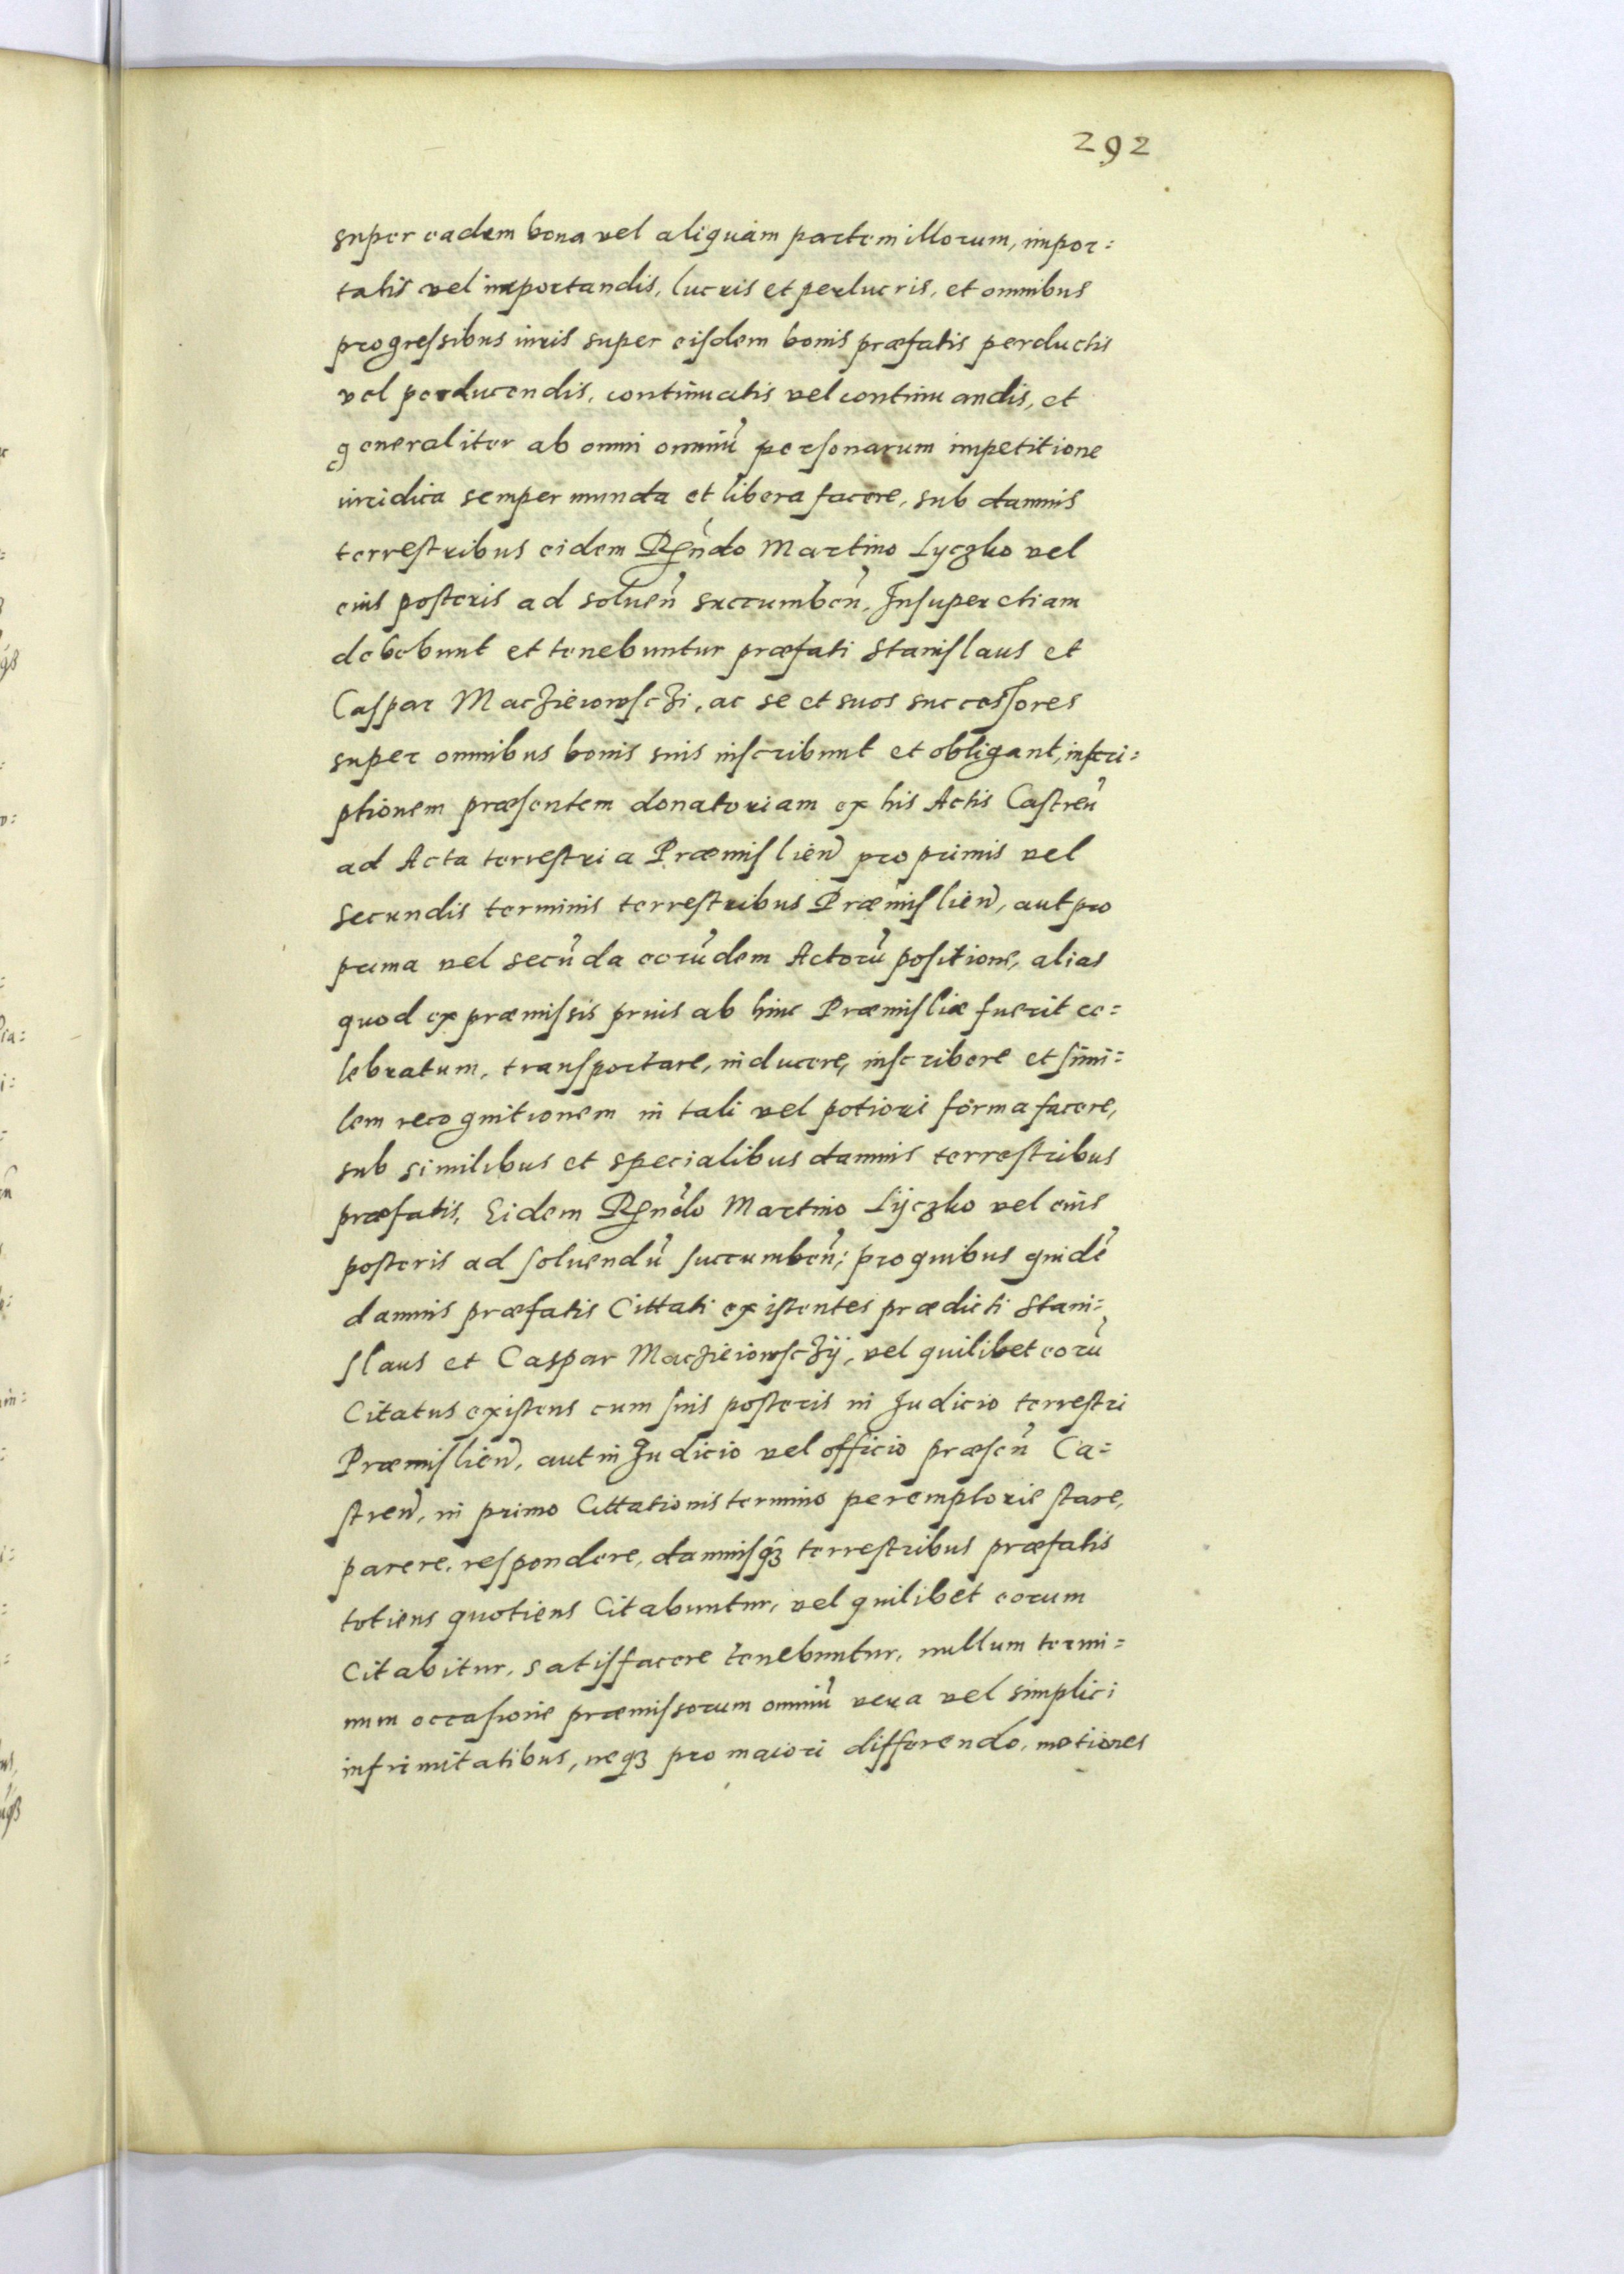 292
super eadem bona vel aliquam partem illorum, impor=
tatis vel importandis, lucris et perlucris, et omnibus
progressibus iuris super eisdem bonis præfatis perductis
vel perducendis, continuatis vel continuandis, et
generaliter ab omni omniū personarum impetitione
iuridica semper munda et libera facere, sub damnis
terrestribus eidem Rṇdo Martino Lyczko vel
eius posteris ad soluen̄ succumben̄. Insuper etiam
debebunt et tenebuntur præfati Stanislaus et
Caspar Maczieiowsczi, ac se et suos successores
super omnibus bonis suis inscribunt et obligant, inscri=
ptionem præsentem donatoriam ex his Actis Castren̄
ad Acta terrestria Præmislien̄ pro primis vel
secundis terminis terrestribus Præmislien̄, aut pro
prima vel secūda eorūdem Actorū positione, alias
quod ex præmissis prius ab hinc Præmisliæ fuerit ce=
lebratum, transportare, inducere, inscribere et simi=
lem recognitionem in tali vel potiori forma facere,
sub similibus et specialibus damnis terrestribus
præfatis, Eidem Rṇdo Martino Lijczko vel eius
posteris ad soluendū succumben̄; pro quibus quidē
damnis præfatis Cittati existentes prædicti Stani=
slaus et Caspar Maczieiowsczij, vel quilibet eorū
Citatus existens cum suis posteris in Judicio terrestri
Præmislien̄, aut in Judicio vel officio præsen̄ Ca=
stren̄, in primo Cittationis termino peremptorie stare,
parere, respondere, damnisqꝫ terrestribus præfatis
totiens quotiens Citabuntur, vel quilibet eorum
Citabitur, satisfacere tenebuntur, nullum termi=
num occasione præmissorum omniū vera vel simplici
infirmitatibus, neqꝫ pro maiori differendo, motiones